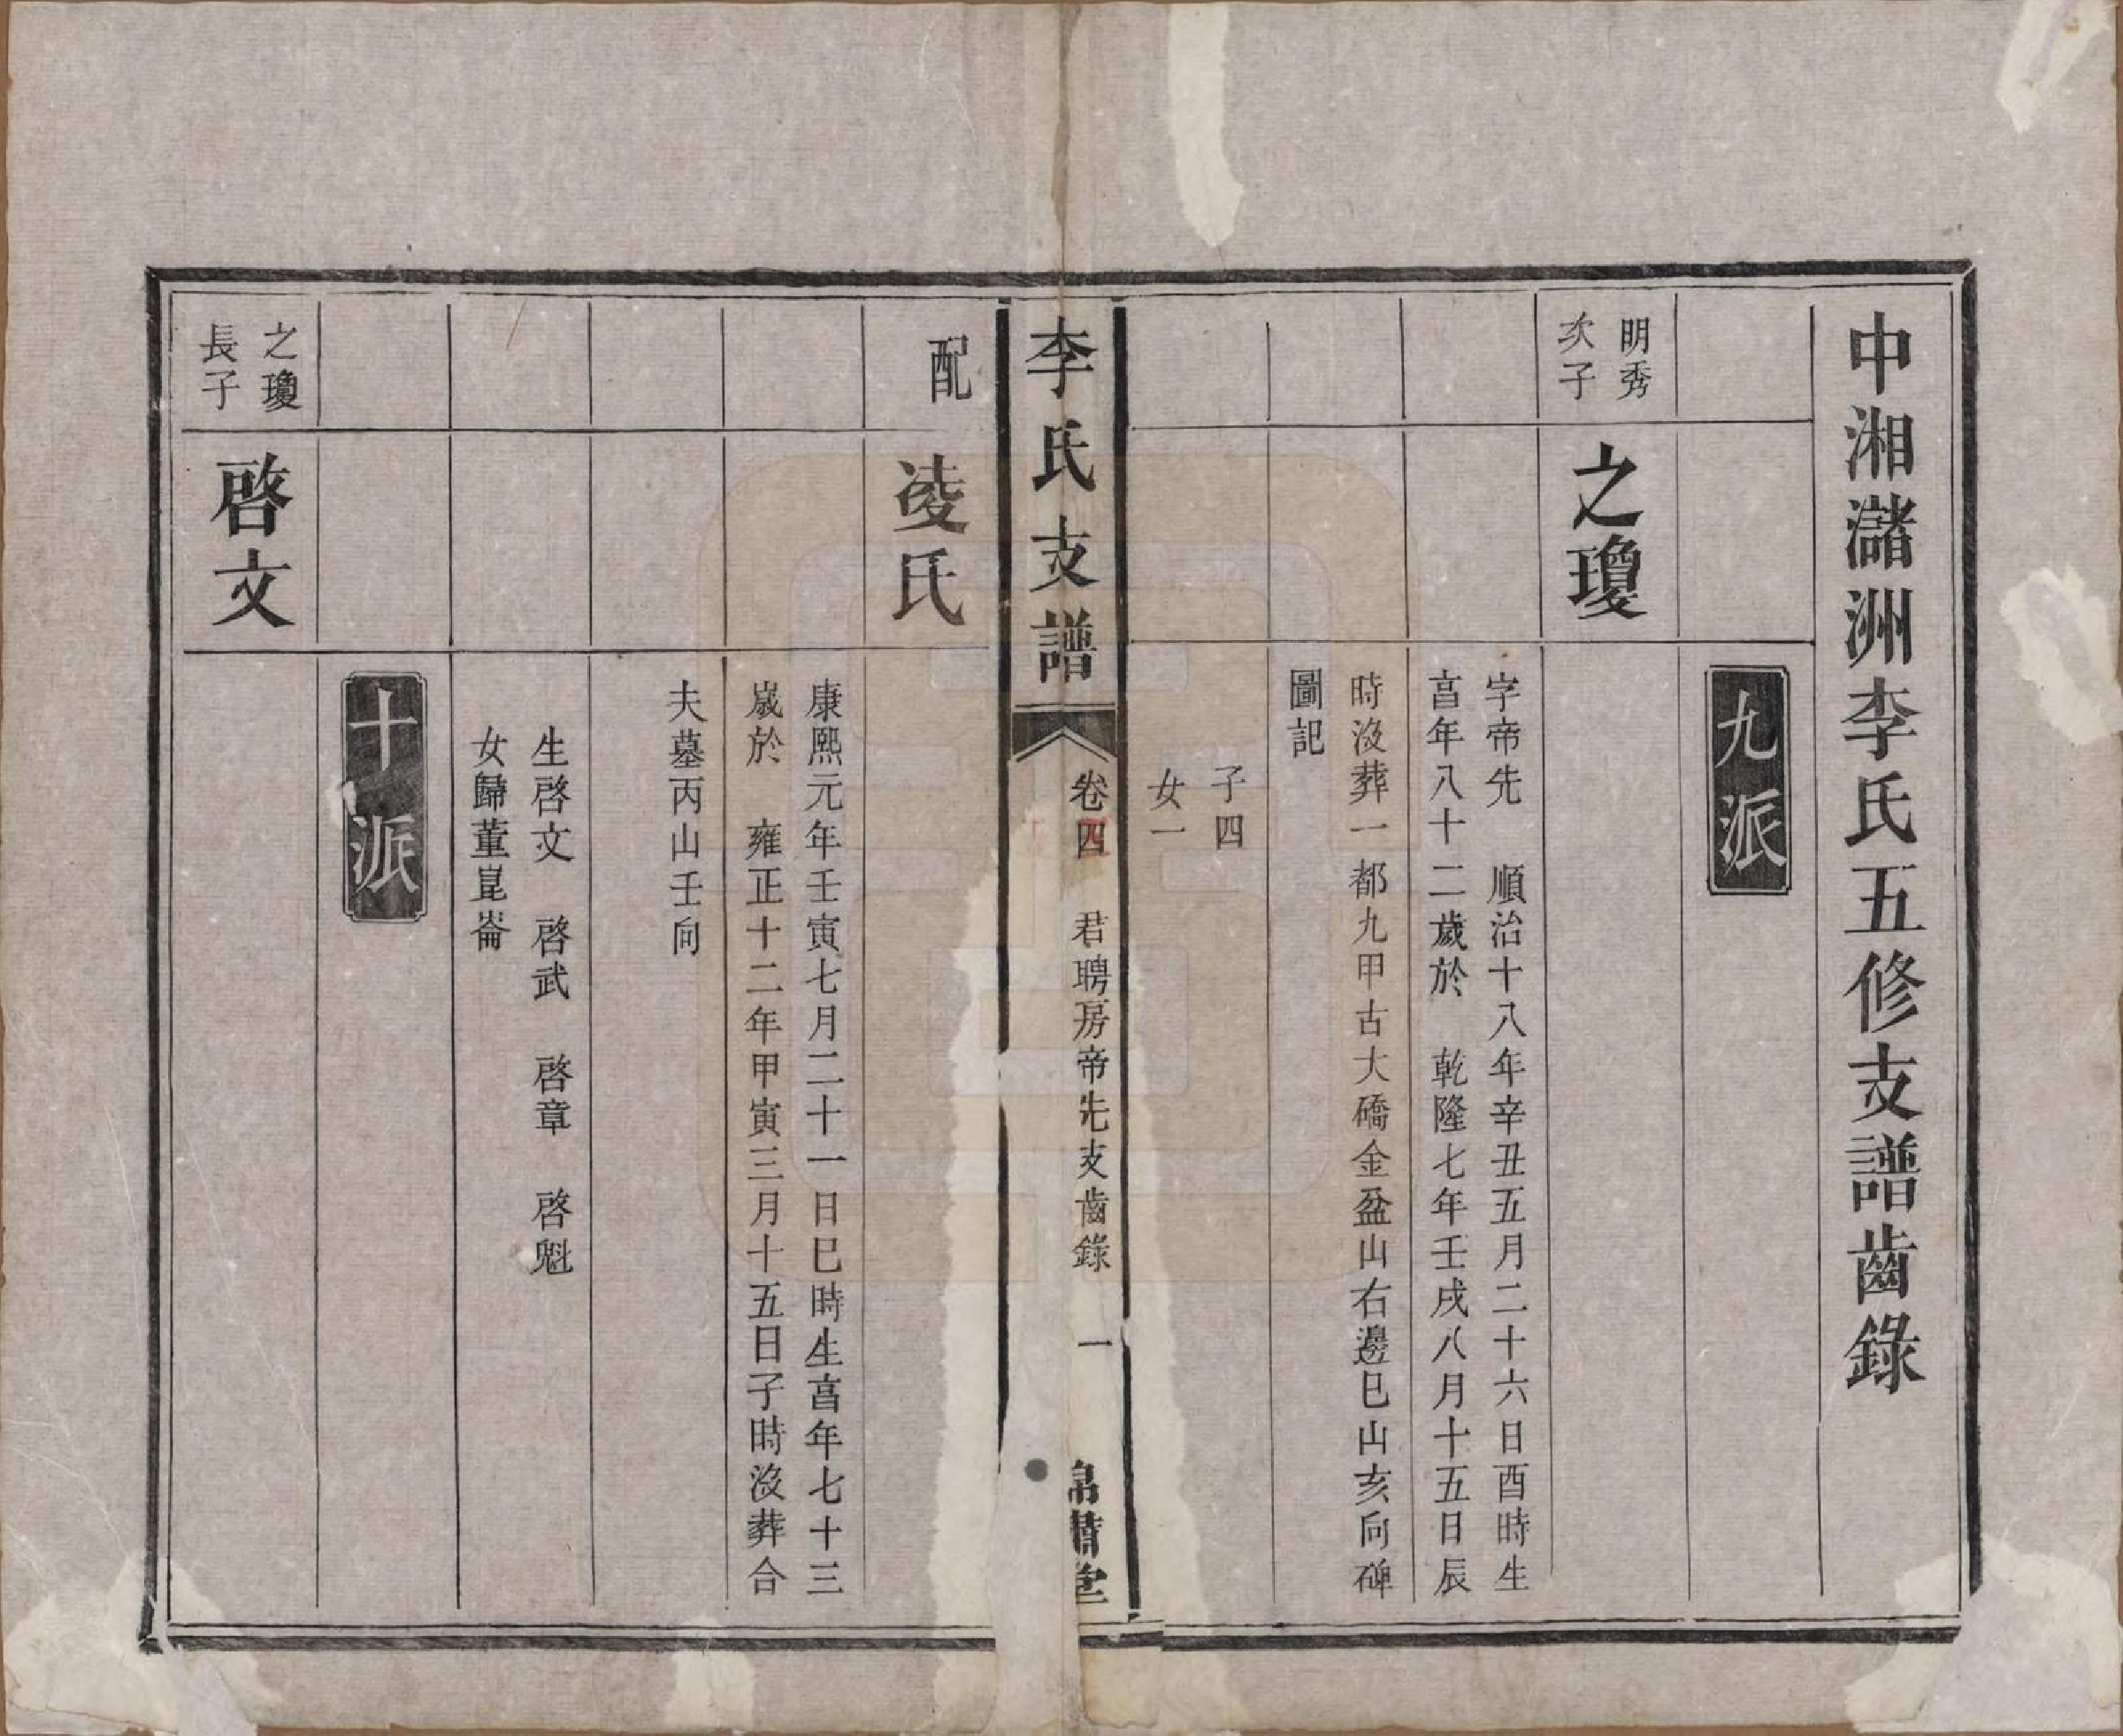 中湘瀦洲李氏五修支譜齒錄
九派
明秀
次子
之瓊
字帝先　順治十八年辛丑五月二十六日酉時生
亯年八十二歲於　乾隆七年壬戌八月十五日辰
時沒葬一都九甲古大礄金盆山右邊巳山亥向碑
圖記
子四
女一
李氏支譜
卷四
君聘房帝先支齒錄
一
配
凌氏
康熙元年壬寅七月二十一日巳時生亯年七十三
歲於　雍正十二年甲寅三月十五日子時沒葬合
夫墓丙山壬向
生啓文　啓武　啓章　啓魁
女歸董崑崙
十派
之瓊
長子
啓文